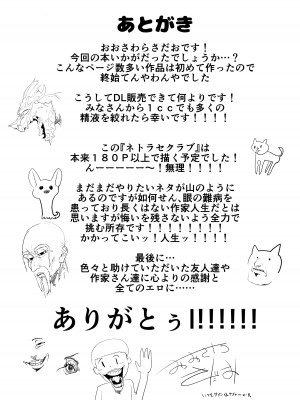 あとがき
おおさわらさだおです！
今回の本いかがだったでしょうか…？
こんなページ数多い作品は初めて作ったので
終始てんやわんやでした
こうしてDL販売できて何よりです！
みなさんから１ｃｃでも多くの
精液を絞れたら幸いです！！！！
この『ネトラセクラブ』は
本来１８０Ｐ以上で描く予定でした！
んーーーーー～！無理！！！！
まだまだやりたいネタが山のように
あるのですが如何せん、眼の難病を
患っており長くはない作家人生だとは
思いますが悔いを残さないよう全力で
挑む所存です！！！！！！！！
かかってこいッ！人生ッ！！！！
最後に…
色々と助けていただいた友人達や
作家さん達に心よりの感謝と
全てのエロに……
ありがとぅ!!!!!!!